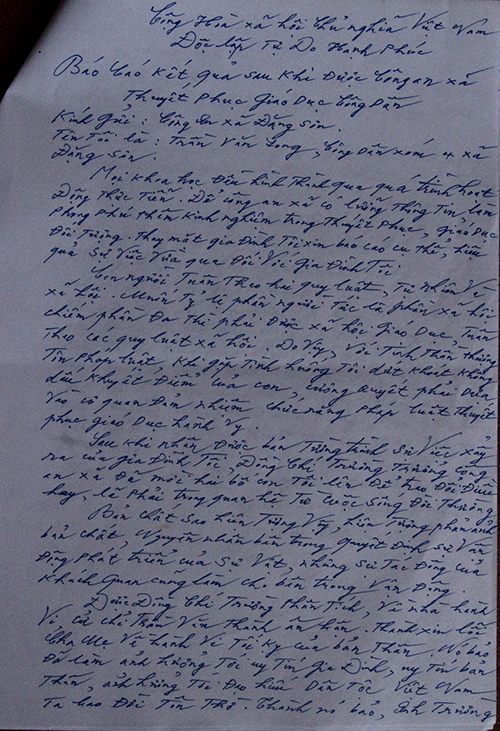 Cộng Hoà xã hội Chủ nghĩa Việt Nam
Độc lập Tự Do Hạnh Phúc
Báo Cáo Kết Quả sau Khi Được Công an xã
Thuyết Phục Giáo Dục Công Dân
Kính Gửi: Công an xã Đặng Sơn.
Tên Tôi là: Trần Văn Long, Công Dân xóm 4 xã
Đặng Sơn.
Mọi Khoa học Đều hình Thành qua quá trình hoạt
Động Thực Tiễn. Để công an xã có lượng Thông Tin, làm
Phong Phú Thêm Kinh nghiệm trong Thuyết Phục, giáo Dục
Đối Tượng. Thay mặt gia Đình Tôi xin báo cáo cụ Thể, hiệu
quả Sự Việc Vừa qua Đối Với gia Đình Tôi
Con người Tuân Theo hai quy luật, Tự nhiên Và
xã hội. Muốn Tỷ lệ phần người Tức là phần xã hội
chiếm phần Đa Thì phải Được xã hội giáo Dục, Tuân
Theo các quy luật xã hội. Do Vậy, Với Tinh Thần Thượng
Tôn Pháp luật, Khi gặp Tình huống Tôi dứt khoát không
dấu Khuyết Điểm của con, cương quyết phải đến
cơ quan Đảm nhiệm chức năng Pháp luật Thuyết
phục giáo Dục hành Vi.
Sau Khi nhận Được bản Tường trình Sự Việc xảy
ra của gia Đình Tôi, Đồng Chí Trường Trưởng công
an xã Đã mời hai bố con Tôi lên Để Trao Đổi Điều
hay, lẽ Phải trong quan hệ Từ cuộc Sống Đời Thường
Bản chất Sao hiện Tượng Vậy, hiện Tượng phản ánh
bản chất, Nguyên nhân bên trong quyết Định Sự Vận
Động Phát triển của Sự Vật, những Sự Tác Động của
Khách Quan cũng làm chi bên trong Vận Động.
Được Đồng Chí Trường Phân Tích, Về nhà hành
Vi, cử chỉ Trần Văn Thành ân hận. Thành xin lỗi
Cha Mẹ Về hành Vi Tối Kỵ của bản Thân. Nó bảo
Đã làm ảnh hưởng Tới uy Tín gia Đình, uy Tín bản
Thân, ảnh hưởng Tới Đạo hiếu Dân Tộc Việt Nam
Ta bao Đời Tôn Thờ. Thành nó bảo, anh Trường